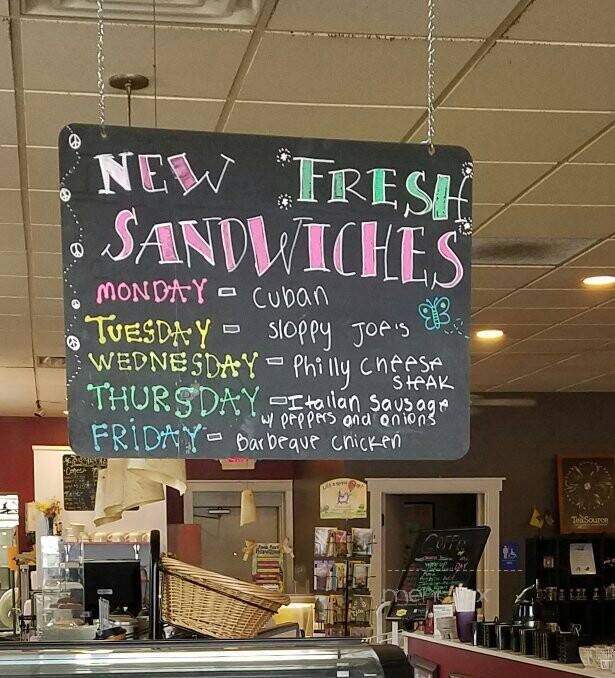 NEW FRESH
SANDWICHES
MONDAY - Cuban
TUESDAY - Sloppy Joe's
WEDNESDAY - Philly Cheese
Steak
THURSDAY - Italian Sausage
w/ peppers and onions
FRIDAY - Barbeque Chicken
COFFEE
TeaSource